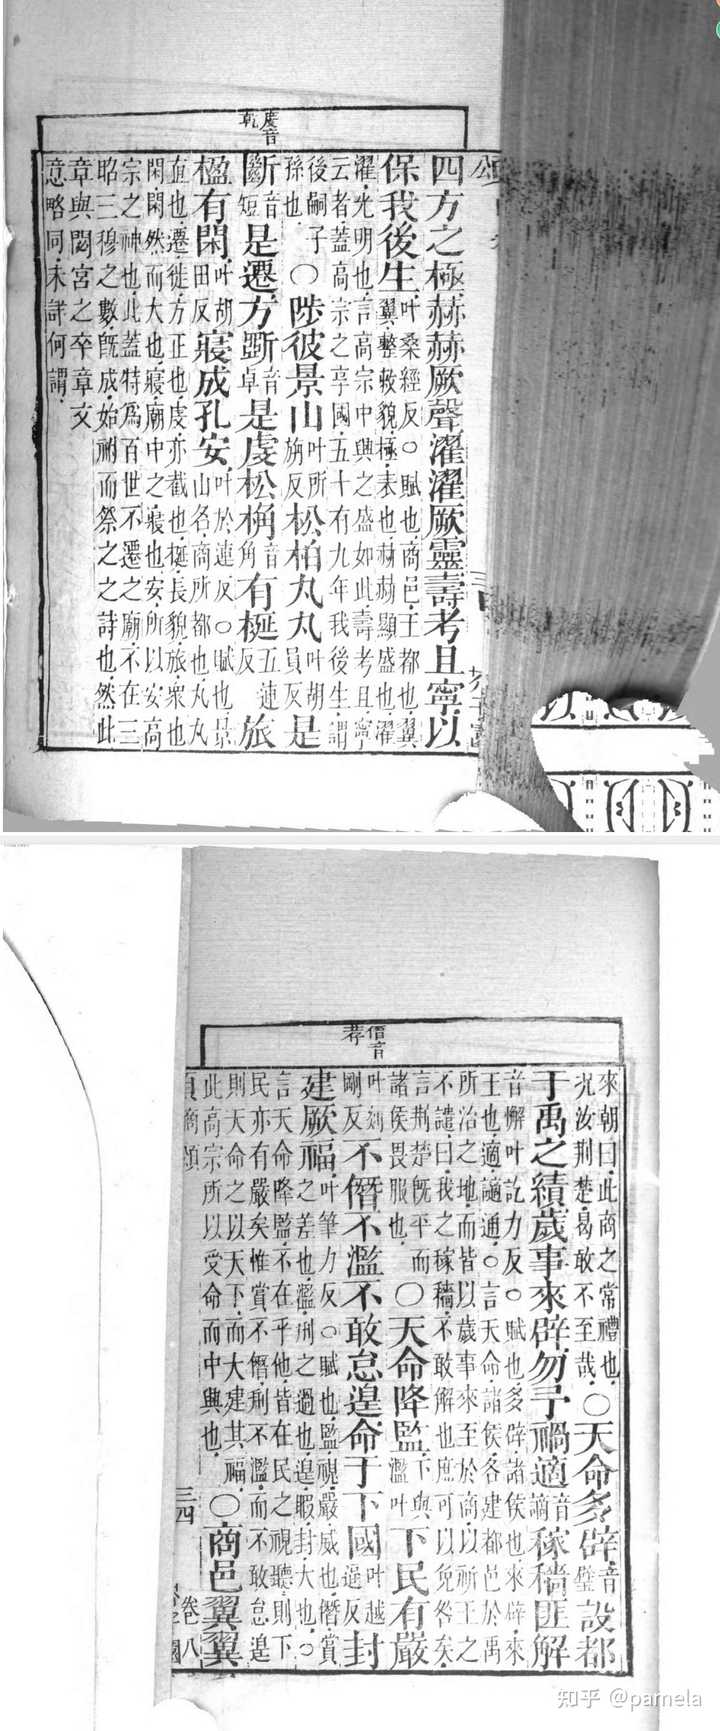 虔音
乾
四方之極赫赫厥聲濯濯厥靈壽考且寧以
保我後生叶桑經反○賦也商邑王都也翼
翼整敕貌極表也赫赫顯盛也濯
濯光明也言高宗中興之盛如此壽考且寧
云者蓋高宗之享國五十有九年我後生謂
後嗣子孫也○陟彼景山叶所旃反松柏丸丸叶胡員反是
斷音短是遷方斲音卓是虔松桷音角有梴五連反旅
楹有閑叶胡田反寢成孔安叶於連反○賦也景
山名商所都也丸丸
直也遷徙方正也虔亦截也梴長貌旅衆也
閑閑然而大也寢廟中之寢也安所以安高
宗之神也此蓋特爲百世不遷之廟不在三
昭三穆之數旣成始祔而祭之之詩也然此
章與閟宮之卒章文
意略同未詳何謂
僭音
荐
來朝曰此商之常禮也
况汝荆楚曷敢不至哉○天命多辟音璧設都
于禹之績歲事來辟勿予禍適音謫稼穡匪解
音懈叶訖力反○賦也多辟諸侯也來辟來
王也適謫通○言天命諸侯各建都邑於禹
所治之地而皆以歲事來至於商以祈王之
不譴曰我之稼穡不敢解也庶可以免咎矣
言荆楚旣平而
諸侯畏服也○天命降監下與濫叶下民有嚴
叶剡剛反不僭不濫不敢怠遑命于下國叶越逼反封
建厥福叶筆力反○賦也監視嚴威也僭賞
之差也濫刑之過也遑暇封大也○
言天命降監不在乎他皆在民之視聽則下
民亦有嚴矣惟賞不僭刑不濫而不敢怠遑
則天命之以天下而大建其福
此高宗所以受命而中興也○商邑翼翼
商頌
三四
卷八
知乎 @pamela